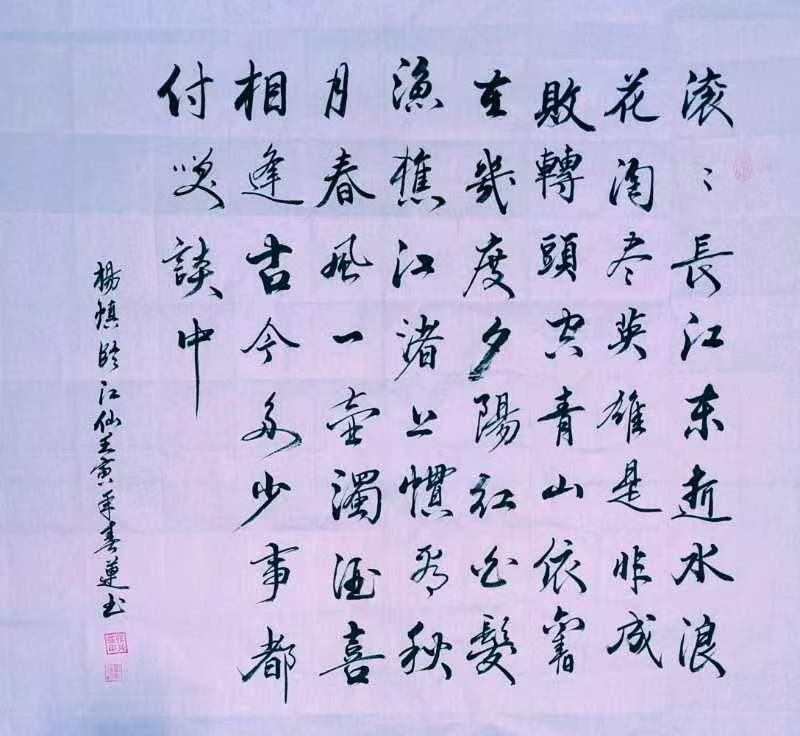 滚〻長江东逝水浪
花淘尽英雄是非成
败轉頭空青山依舊
在幾度夕陽红白髮
渔樵江渚上惯看秋
月春風一壶濁酒喜
相逢古今多少事都
付笑談中
楊慎临江仙壬寅年春蓮书